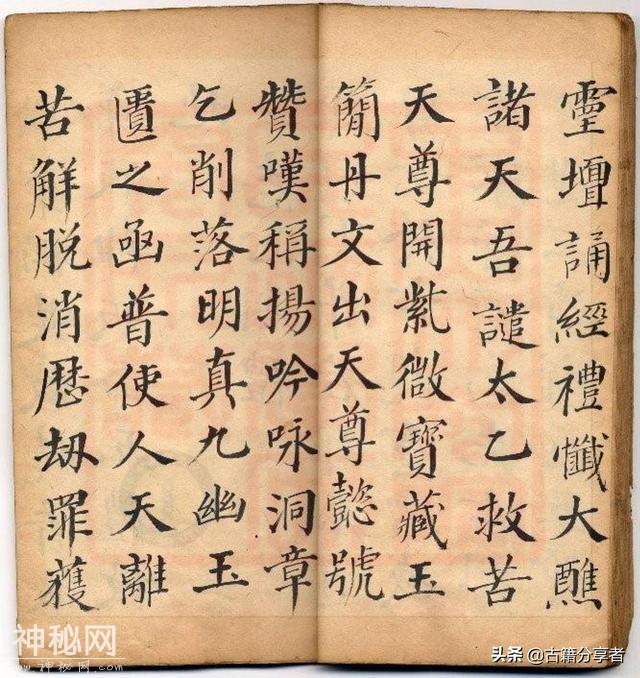 靈壇誦經禮懺大醮
諸天吾譴太乙救苦
天尊開紫微寶藏玉
簡丹文出天尊懿號
贊嘆稱揚吟咏洞章
乞削落明真九幽玉
匱之凾普使人天離
苦解脱消歷劫罪獲
神秘网
www.神秘网.com
头条 @古籍分享者